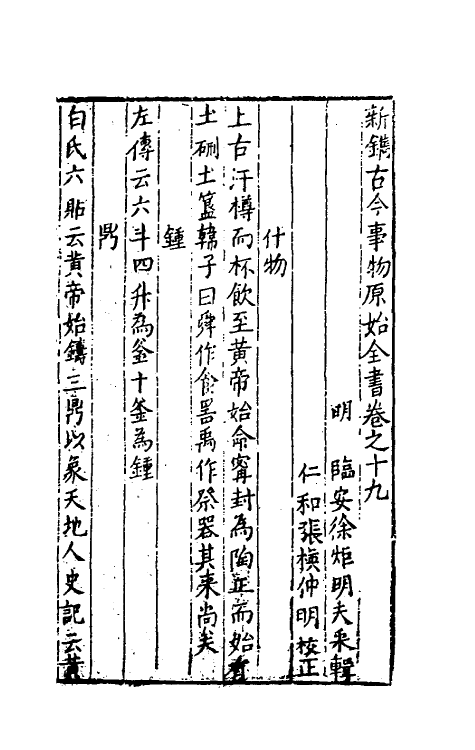 新鐫古今事物原始全書卷之十九
明 臨安徐炬明夫采輯
仁和張楧仲明校正
什物
上古汙樽而杯飲至黃帝始命甯封為陶正而始有
土硎土簋韓子曰舜作食器禹作祭器其来尚矣
鍾
左傳云六斗四升為釜十釜為鍾
鼎
白氏六貼云黃帝始鑄三鼎以象天地人史記云黃